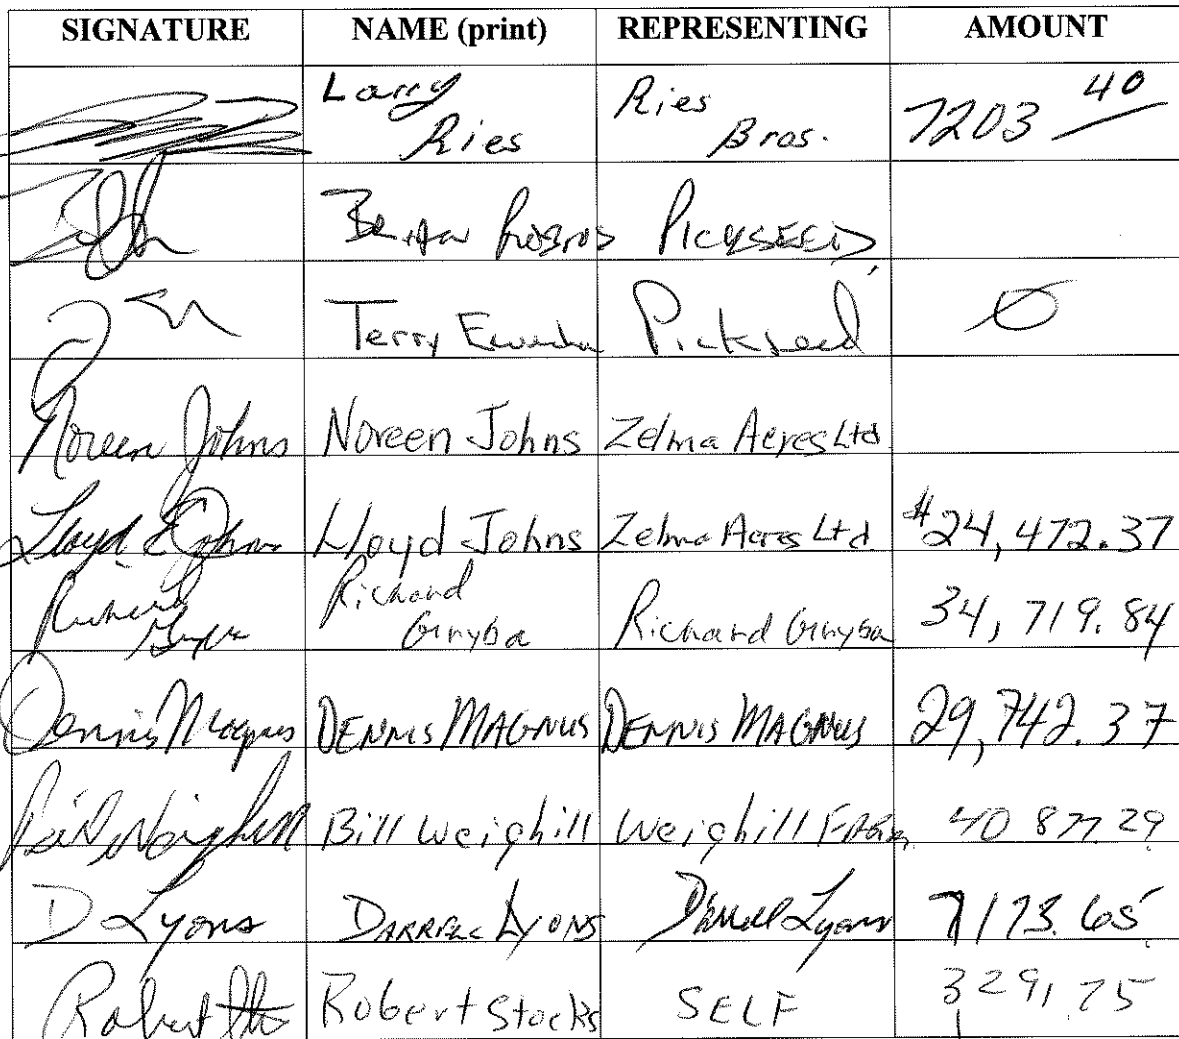 SIGNATURE NAME (print) REPRESENTING AMOUNT
Larry Ries Ries Bros. 7203 40
Brian PICKSEED
Terry Pickseed Ø
Noreen Johns Noreen Johns Zelma Acres Ltd
Lloyd E Johns Lloyd Johns Zelma Acres Ltd $24,472.37
Richard Gryba Richard Gryba Richard Gryba 34,719.84
Dennis Magnus DENNIS MAGNUS DENNIS MAGNUS 29,742.37
Bill Weighill Bill Weighill Weighill FARM 40 877.29
D Lyons DARRELL LYONS Darrell Lyons 7173.65
Robert Robert Stocks SELF 3291.75